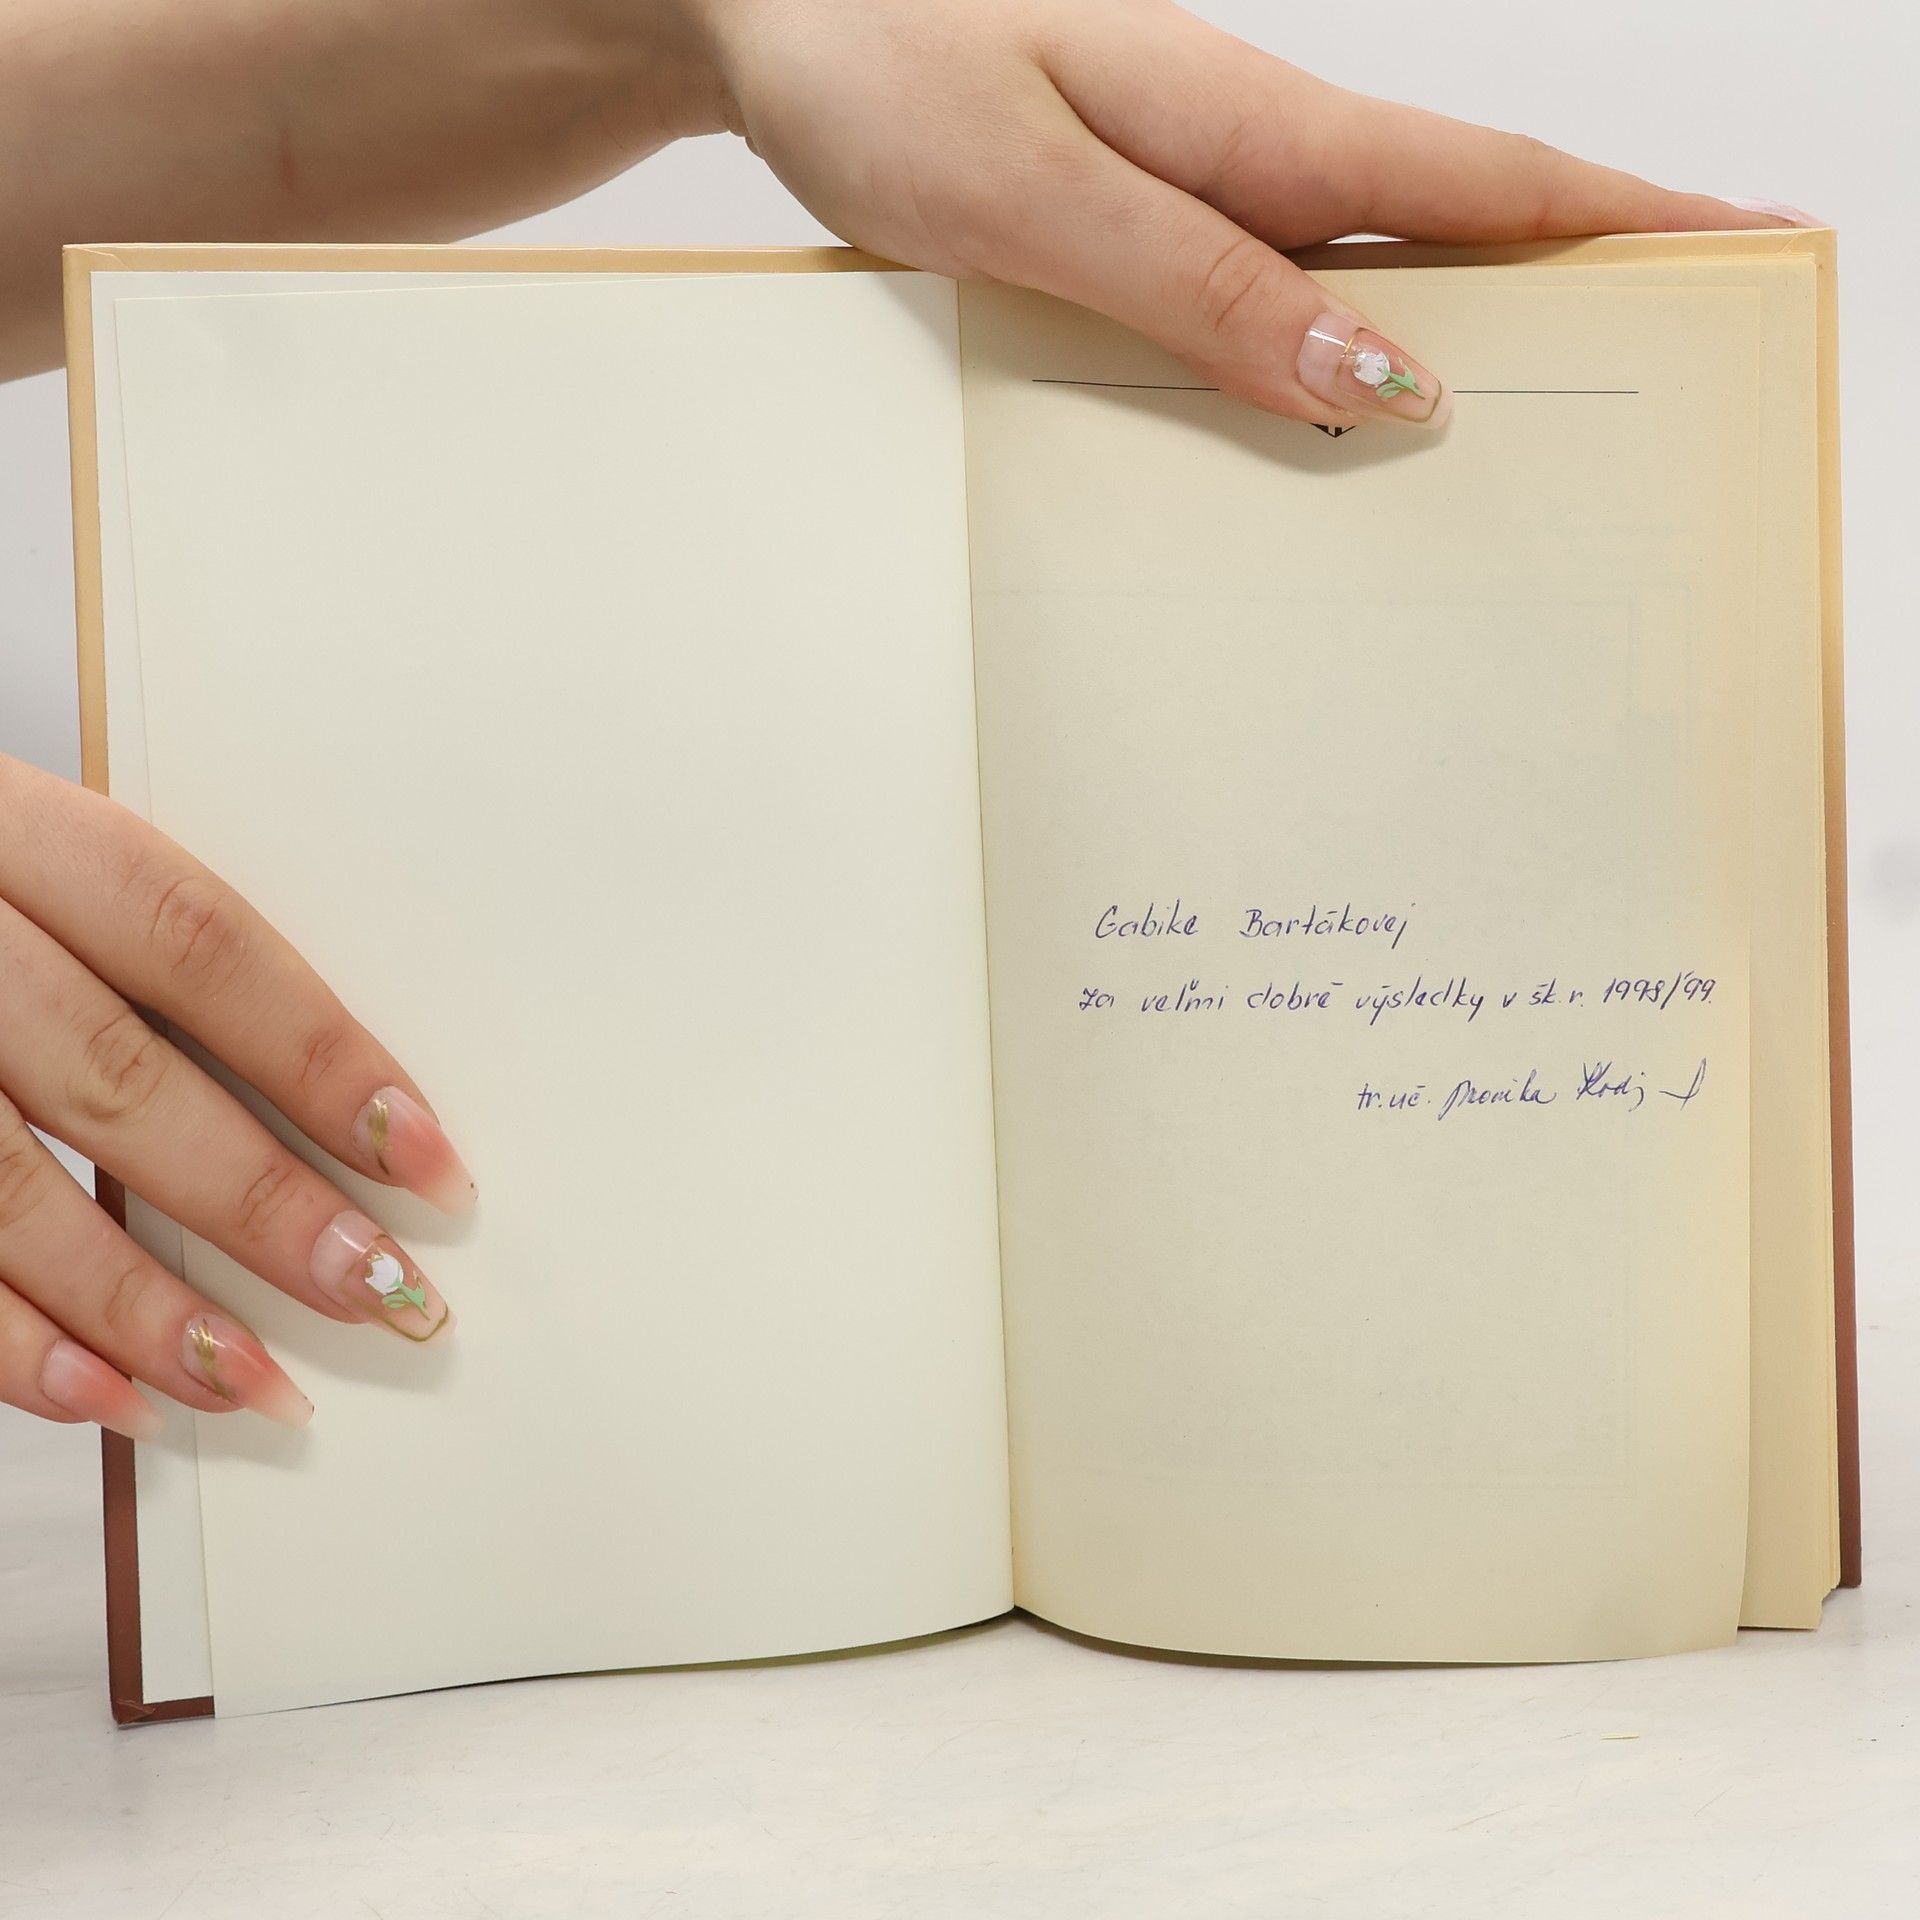 Gabike Bartákovej
za veľmi dobré výsledky v šk. r. 1998/99.
tr. uč. Monika